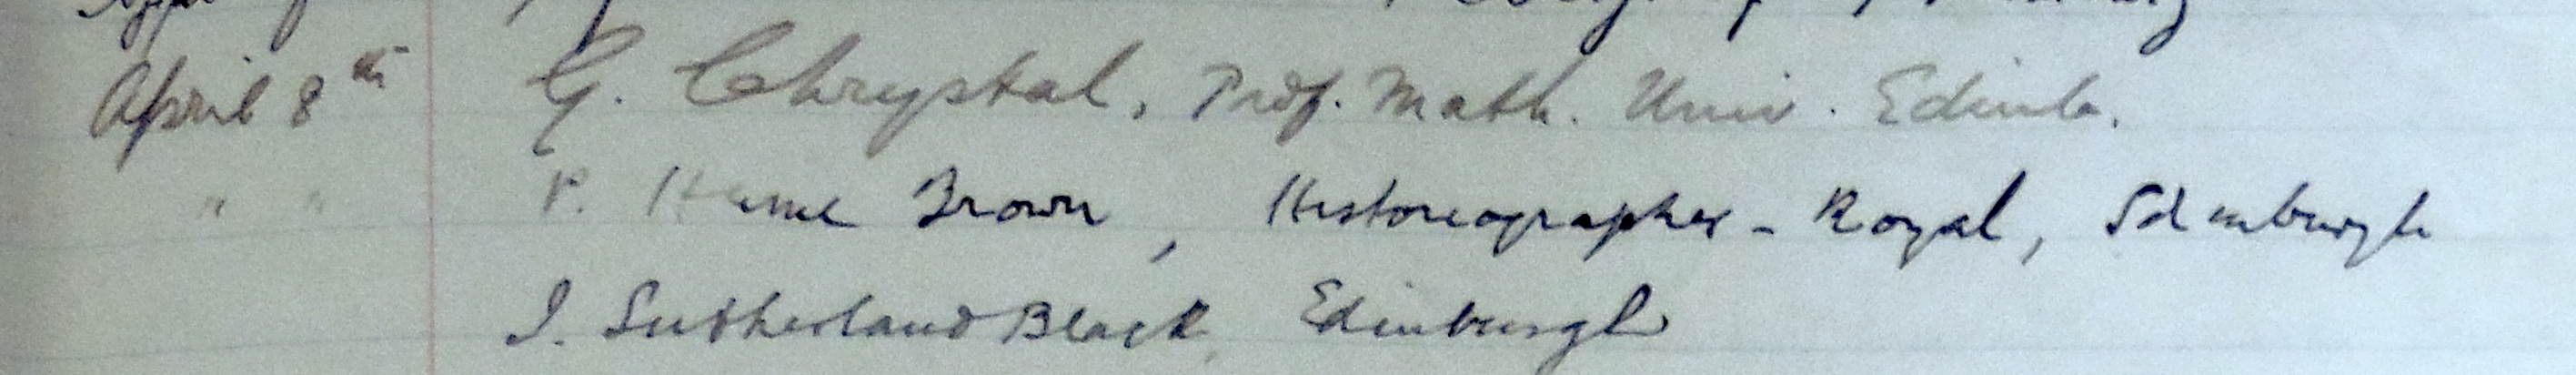 April 8th G. Chrystal, Prof. Math. Univ. Edinb.
" " P. Hume Brown, Historiographer-Royal, Edinburgh
J. Sutherland Black, Edinburgh